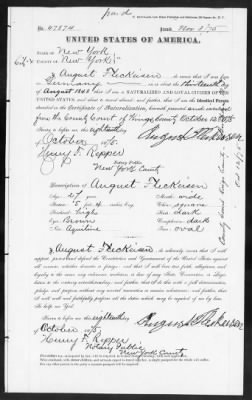 No. 47574
Issued Nov 2/75
UNITED STATES OF AMERICA.
STATE OF New York
COUNTY OF New York
I, August Fleckeisen, do swear that I was born in
Germany on or about the thirteenth day
of August 1848; that I am a NATURALIZED AND LOYAL CITIZEN OF THE
UNITED STATES and about to travel abroad; and further, that I am the identical Person
described in the Certificate of Naturalization
from the County Court of Kings County October
Sworn to before me this eighteenth day
of October 1875.
August Fleckeisen
Henry F. Repper
Notary Public
New York County
Description of August Fleckeisen
Age: 27 years
Mouth: wide
Stature: 5 feet inches Eng.
Chin: square
Forehead: high
Hair: dark
Eyes: Brown
Complexion: dark
Nose: Aquiline
Face: oval
I, August Fleckeisen, do solemnly swear that I will
support, protect and defend the Constitution and Government of the United States against
all enemies, whether domestic or foreign; and that I will bear true faith, allegiance and
loyalty to the same, any ordinance, resolution or law of any State, Convention, or Legislature
to the contrary notwithstanding; and further, that I do this with a full determination,
pledge, and purpose, without any mental reservation or evasion whatsoever; and further, that
I will well and faithfully perform all the duties which may be required of me by law.
So help me God.
Sworn to before me this eighteenth day
of October 1875
August Fleckeisen
Henry F. Repper
Notary Public
New York County